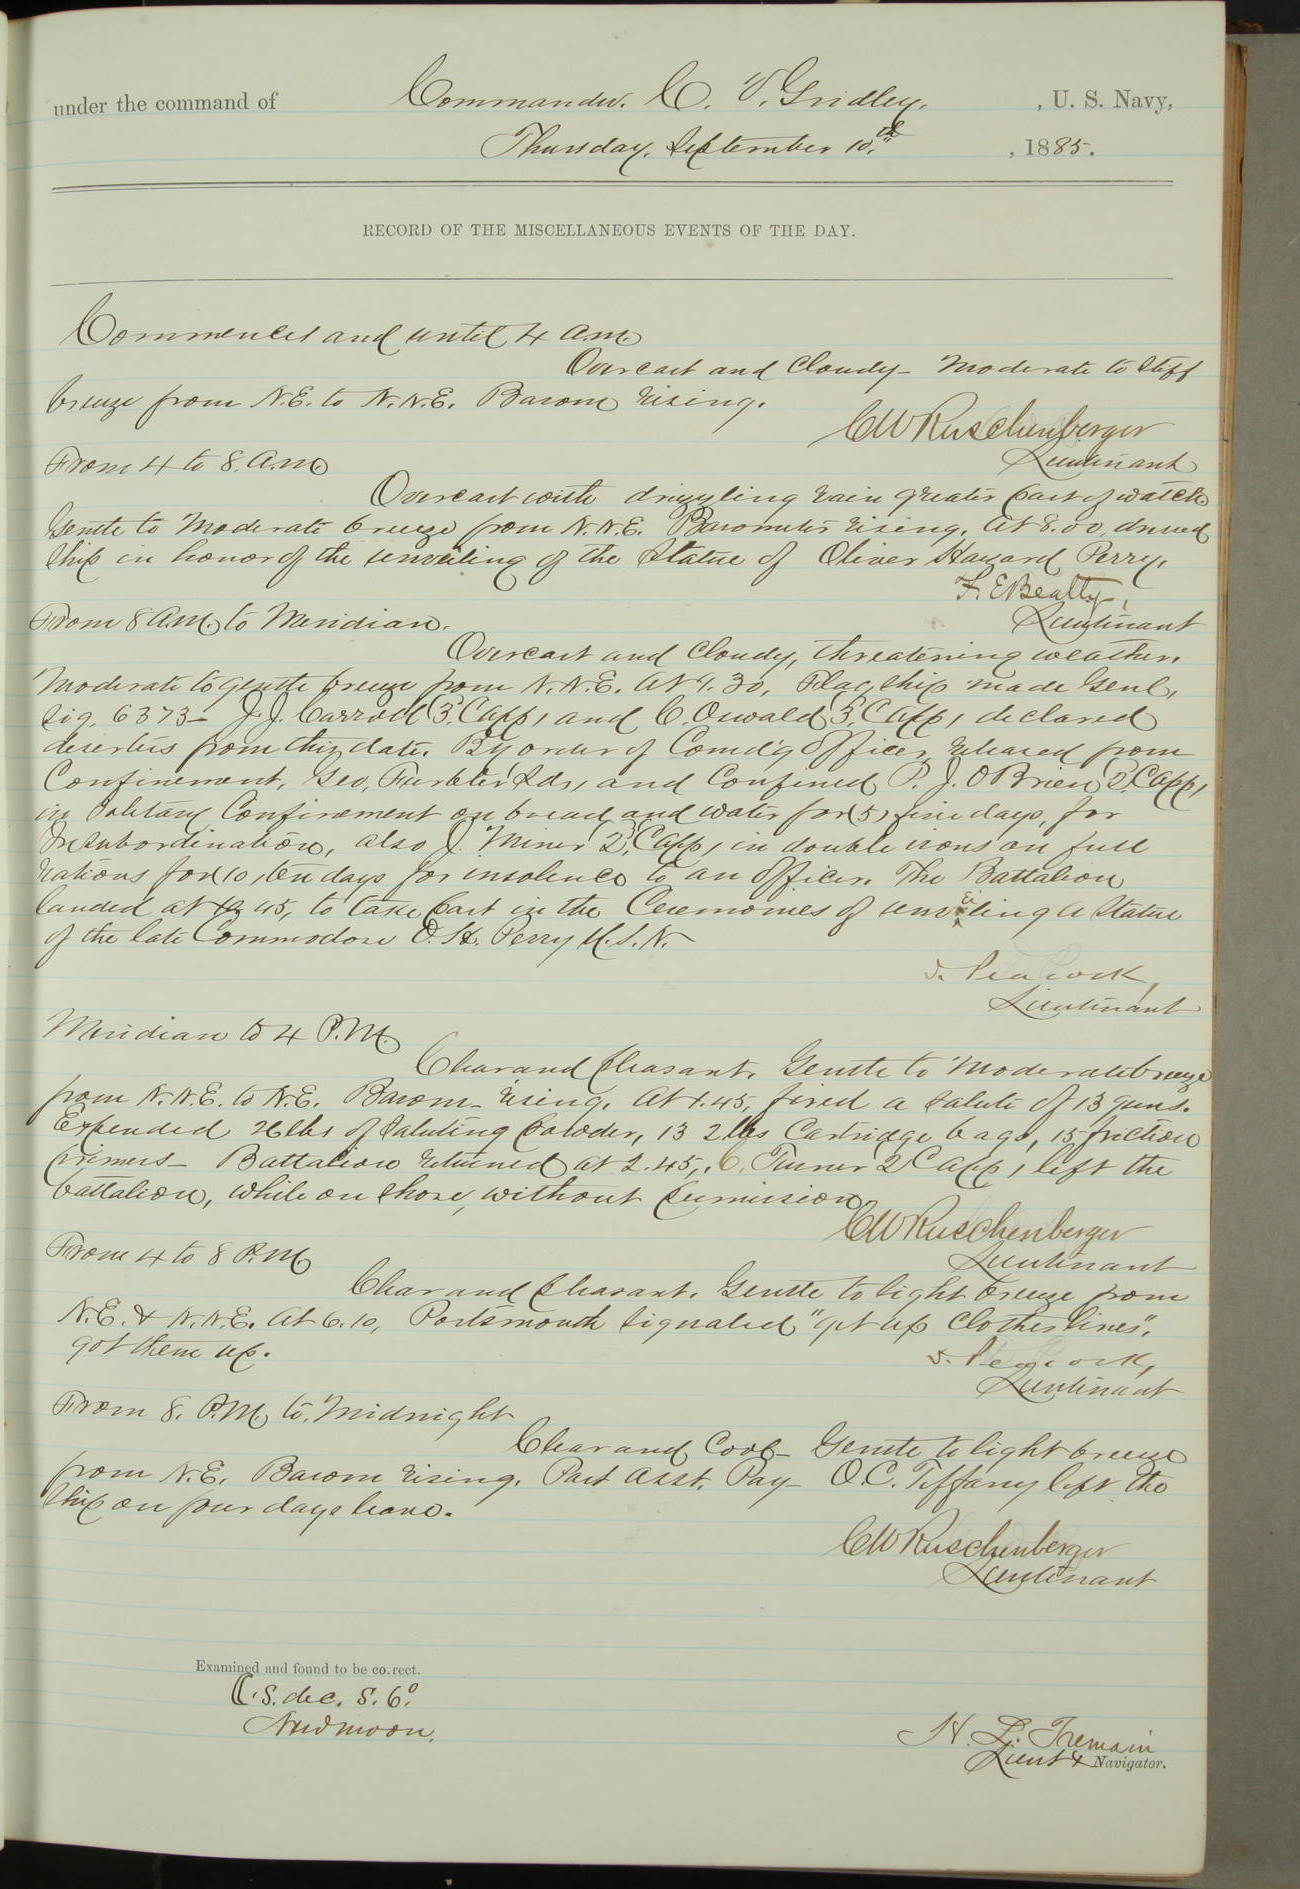 under the command of Commander. C. V. Gridley. , U. S. Navy,
Thursday. September 10.th , 1885.
RECORD OF THE MISCELLANEOUS EVENTS OF THE DAY.
Commences and until 4 a.m.
Overcast and Cloudy- Moderate to Stiff
breeze from N.E. to N.N.E. Barom rising.
C W Ruschenberger
Lieutenant
From 4 to 8. a.m.
Overcast with drizzling rain greater part of watch
Gentle to Moderate breeze from N.N.E. Barometer rising. At 8.00, dressed
Ship in honor of the unveiling of the Statue of Oliver Hazard Perry.
F. E Beatty,
Lieutenant
From 8 A.M. to Meridian.
Overcast and Cloudy, threatening weather.
Moderate to gentle breeze from N.N.E. At 9.30, Flag ship made Genl,
Sig. 6373- J. J. Carroll (3. C App, and C. Oswald 3. C App, declared
deserters from this date. By order of Comd'g Officer released from
Confinement, Geo, Furbler Lds, and Confined P. J. O Brien 2. C App,
in Solitary Confinement on bread and water for (5) five days, for
Insubordination, also J. Miner 2. C App, in double irons on full
rations for (10, ten days for insolence to an Officer. The Battalion
landed at 45, to take part in the Ceremonies of unveiling a Statue
of the late Commodore O. H. Perry U. S. N.
Peacock,
Lieutenant
Meridian to 4 P.M.
Clear and pleasant. Gentle to Moderate breeze
from N.N.E. to N.E. Barom- rising. At 1.45, fired a salute of 13 guns.
Expended 26 lbs of Saluting powder, 13 2 lbs Cartridge bags, 15 friction
primers- Battalion returned at 2.45,. C. Turner 2 C App, left the
battalion, while on shore, without permission
C W Ruschenberger
Lieutenant
From 4 to 8 P.M.
Clear and pleasant. Gentle to light breeze from
N.E. & N.N.E. At 6.10, Portsmouth signaled "get up Clothes lines".
got them up.
Peacock,
Lieutenant
From 8. P.M. to. Midnight
Clear and Cool- Gentle to light breeze
from N.E. Barom rising. Past Asst. Pay- O.C. Tiffany left the
Ship on four days leave.
C W Ruschenberger
Lieutenant
Examined and found to be correct.
☾.s. dec. S. 6°.
New moon.
H. L. Tremain
Lieut & Navigator.